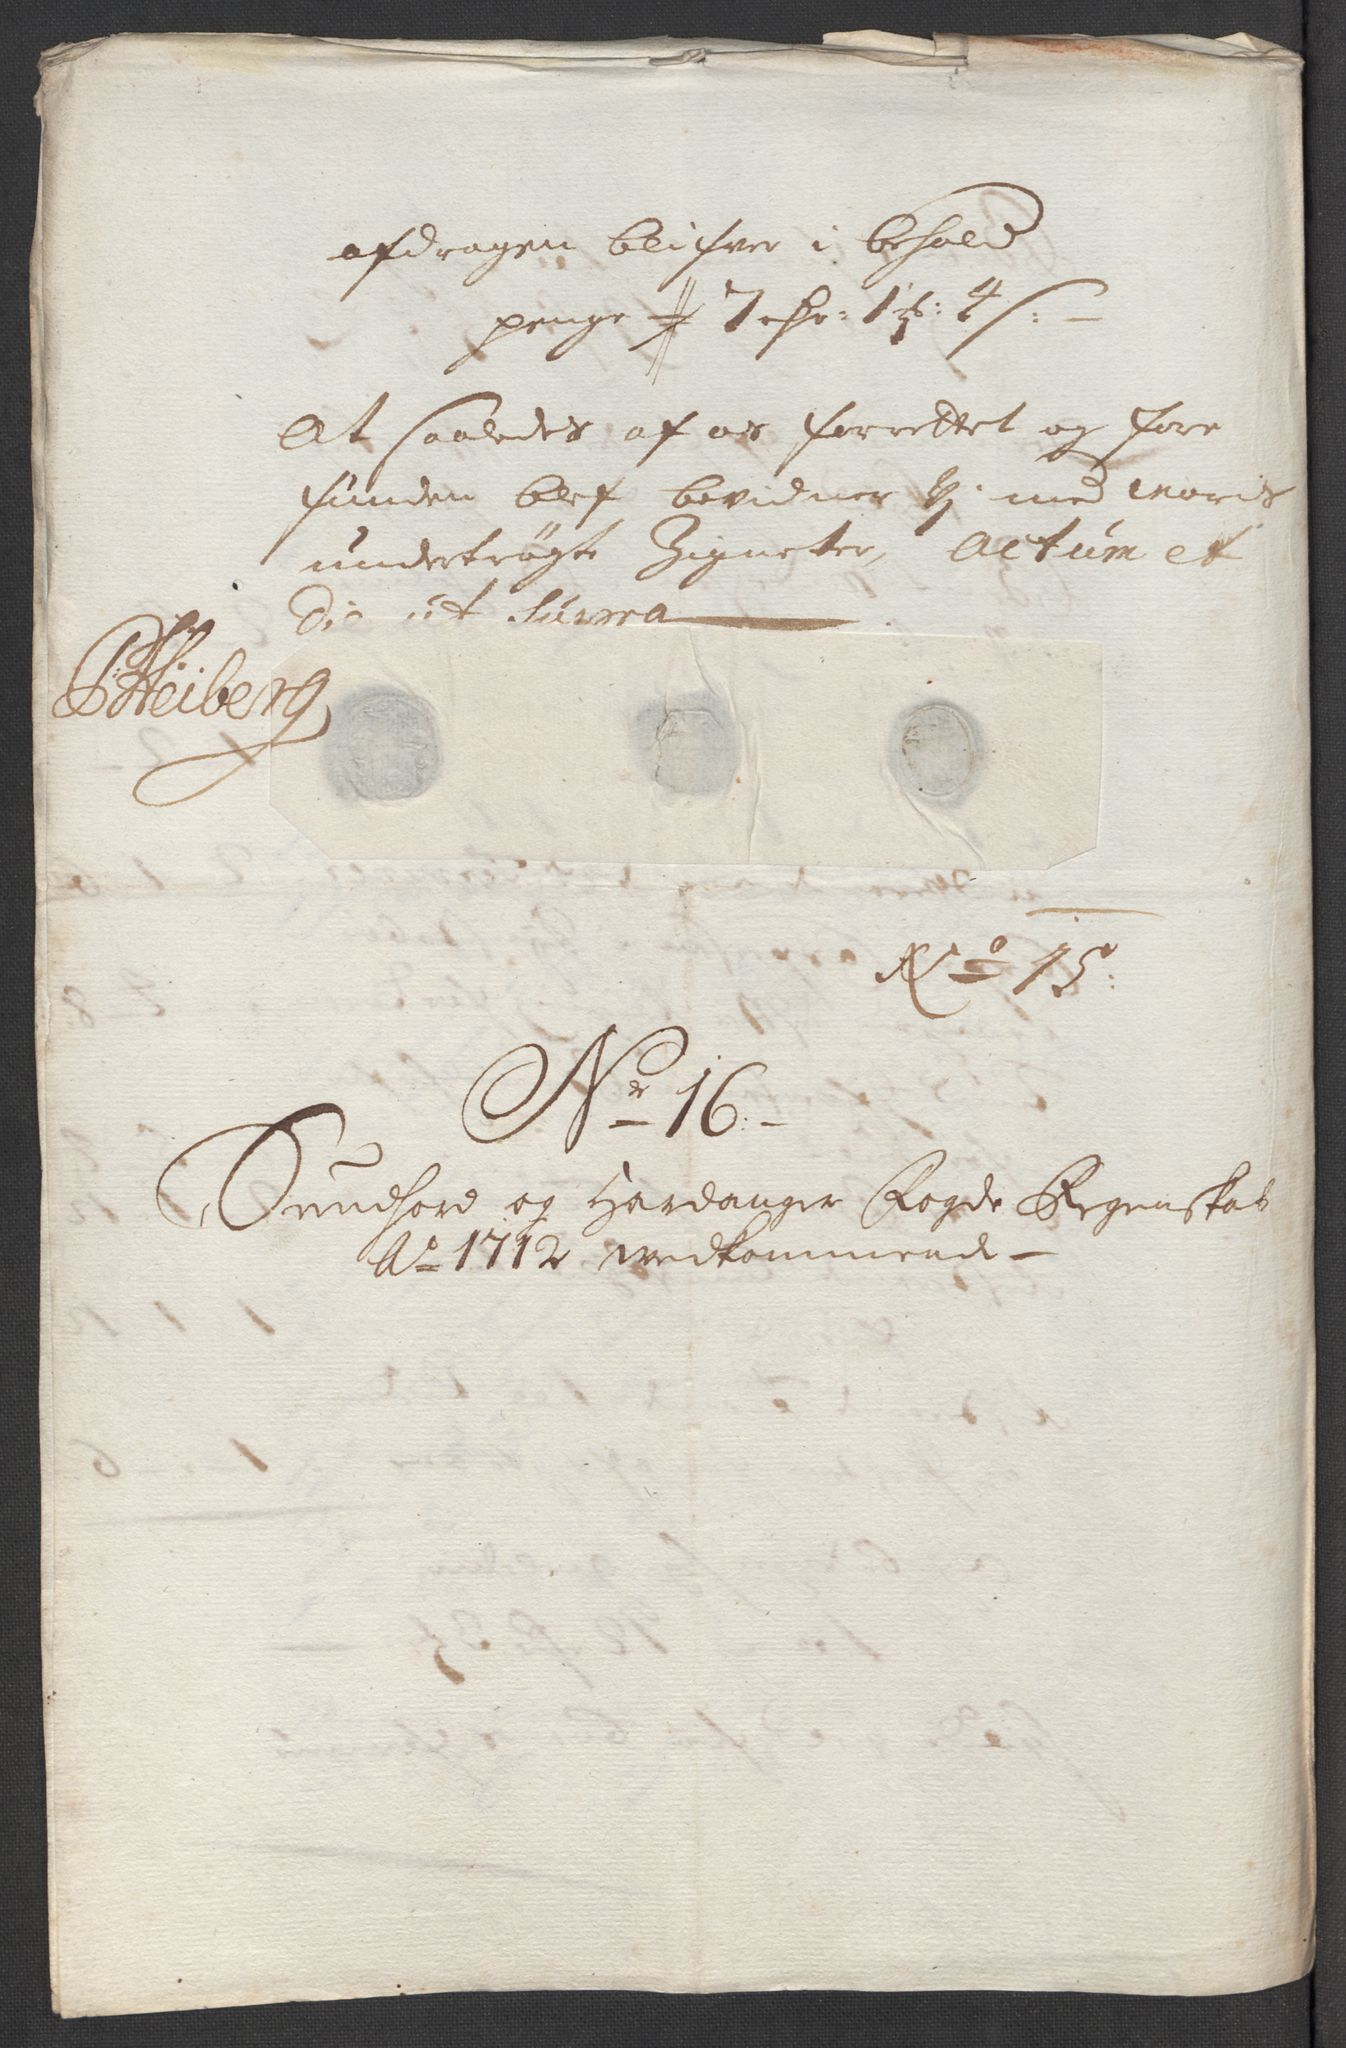 afdragen blifver i behold
penge 7 rdr: 1 ₰: 4 s:
At saaledes af os forrettet og fore
funden blef bevidner Vj med Voris
undertrögte Zigneter, Actum et
Die ut Supra
P: Heiberg
No 15:
Nr 16:
Sundhord og Hardanger Fogde Regenskab
Ao 1712 vedkommende